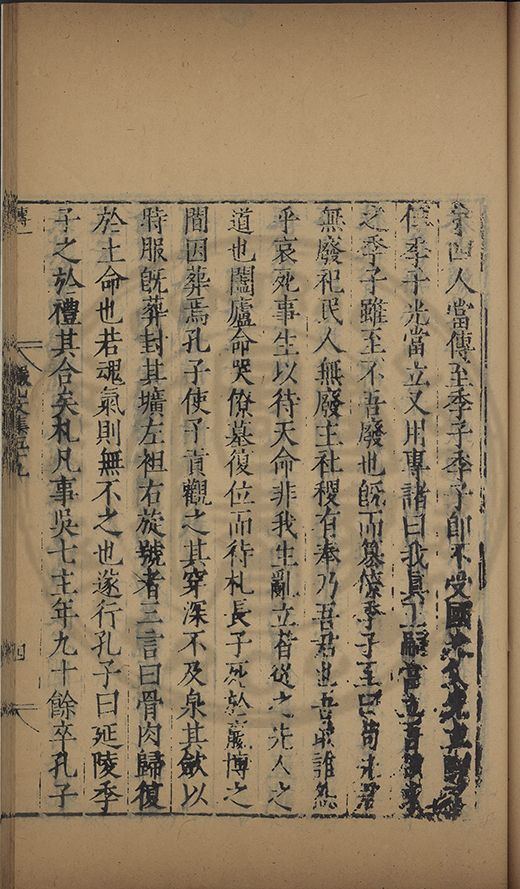 四人當傳至季子季子卽不受國
季子光當立又用專諸曰我真王嗣當立吾
之季子雖至不吾廢也旣而簒僚季子至曰苟先君
無廢祀民人無廢主社稷有奉乃吾君也吾敢誰怨
乎哀死事生以待天命非我生亂立者從之先人之
道也闔廬命哭僚墓復位而待札長子死於嬴博之
間因葬焉孔子使子貢觀之其穿深不及泉其斂以
時服旣葬封其壙左袒右旋號者三言曰骨肉歸復
於土命也若魂氣則無不之也遂行孔子曰延陵季
子之於禮其合矣札凡事吳七主年九十餘卒孔子
傳一
集五十九
四